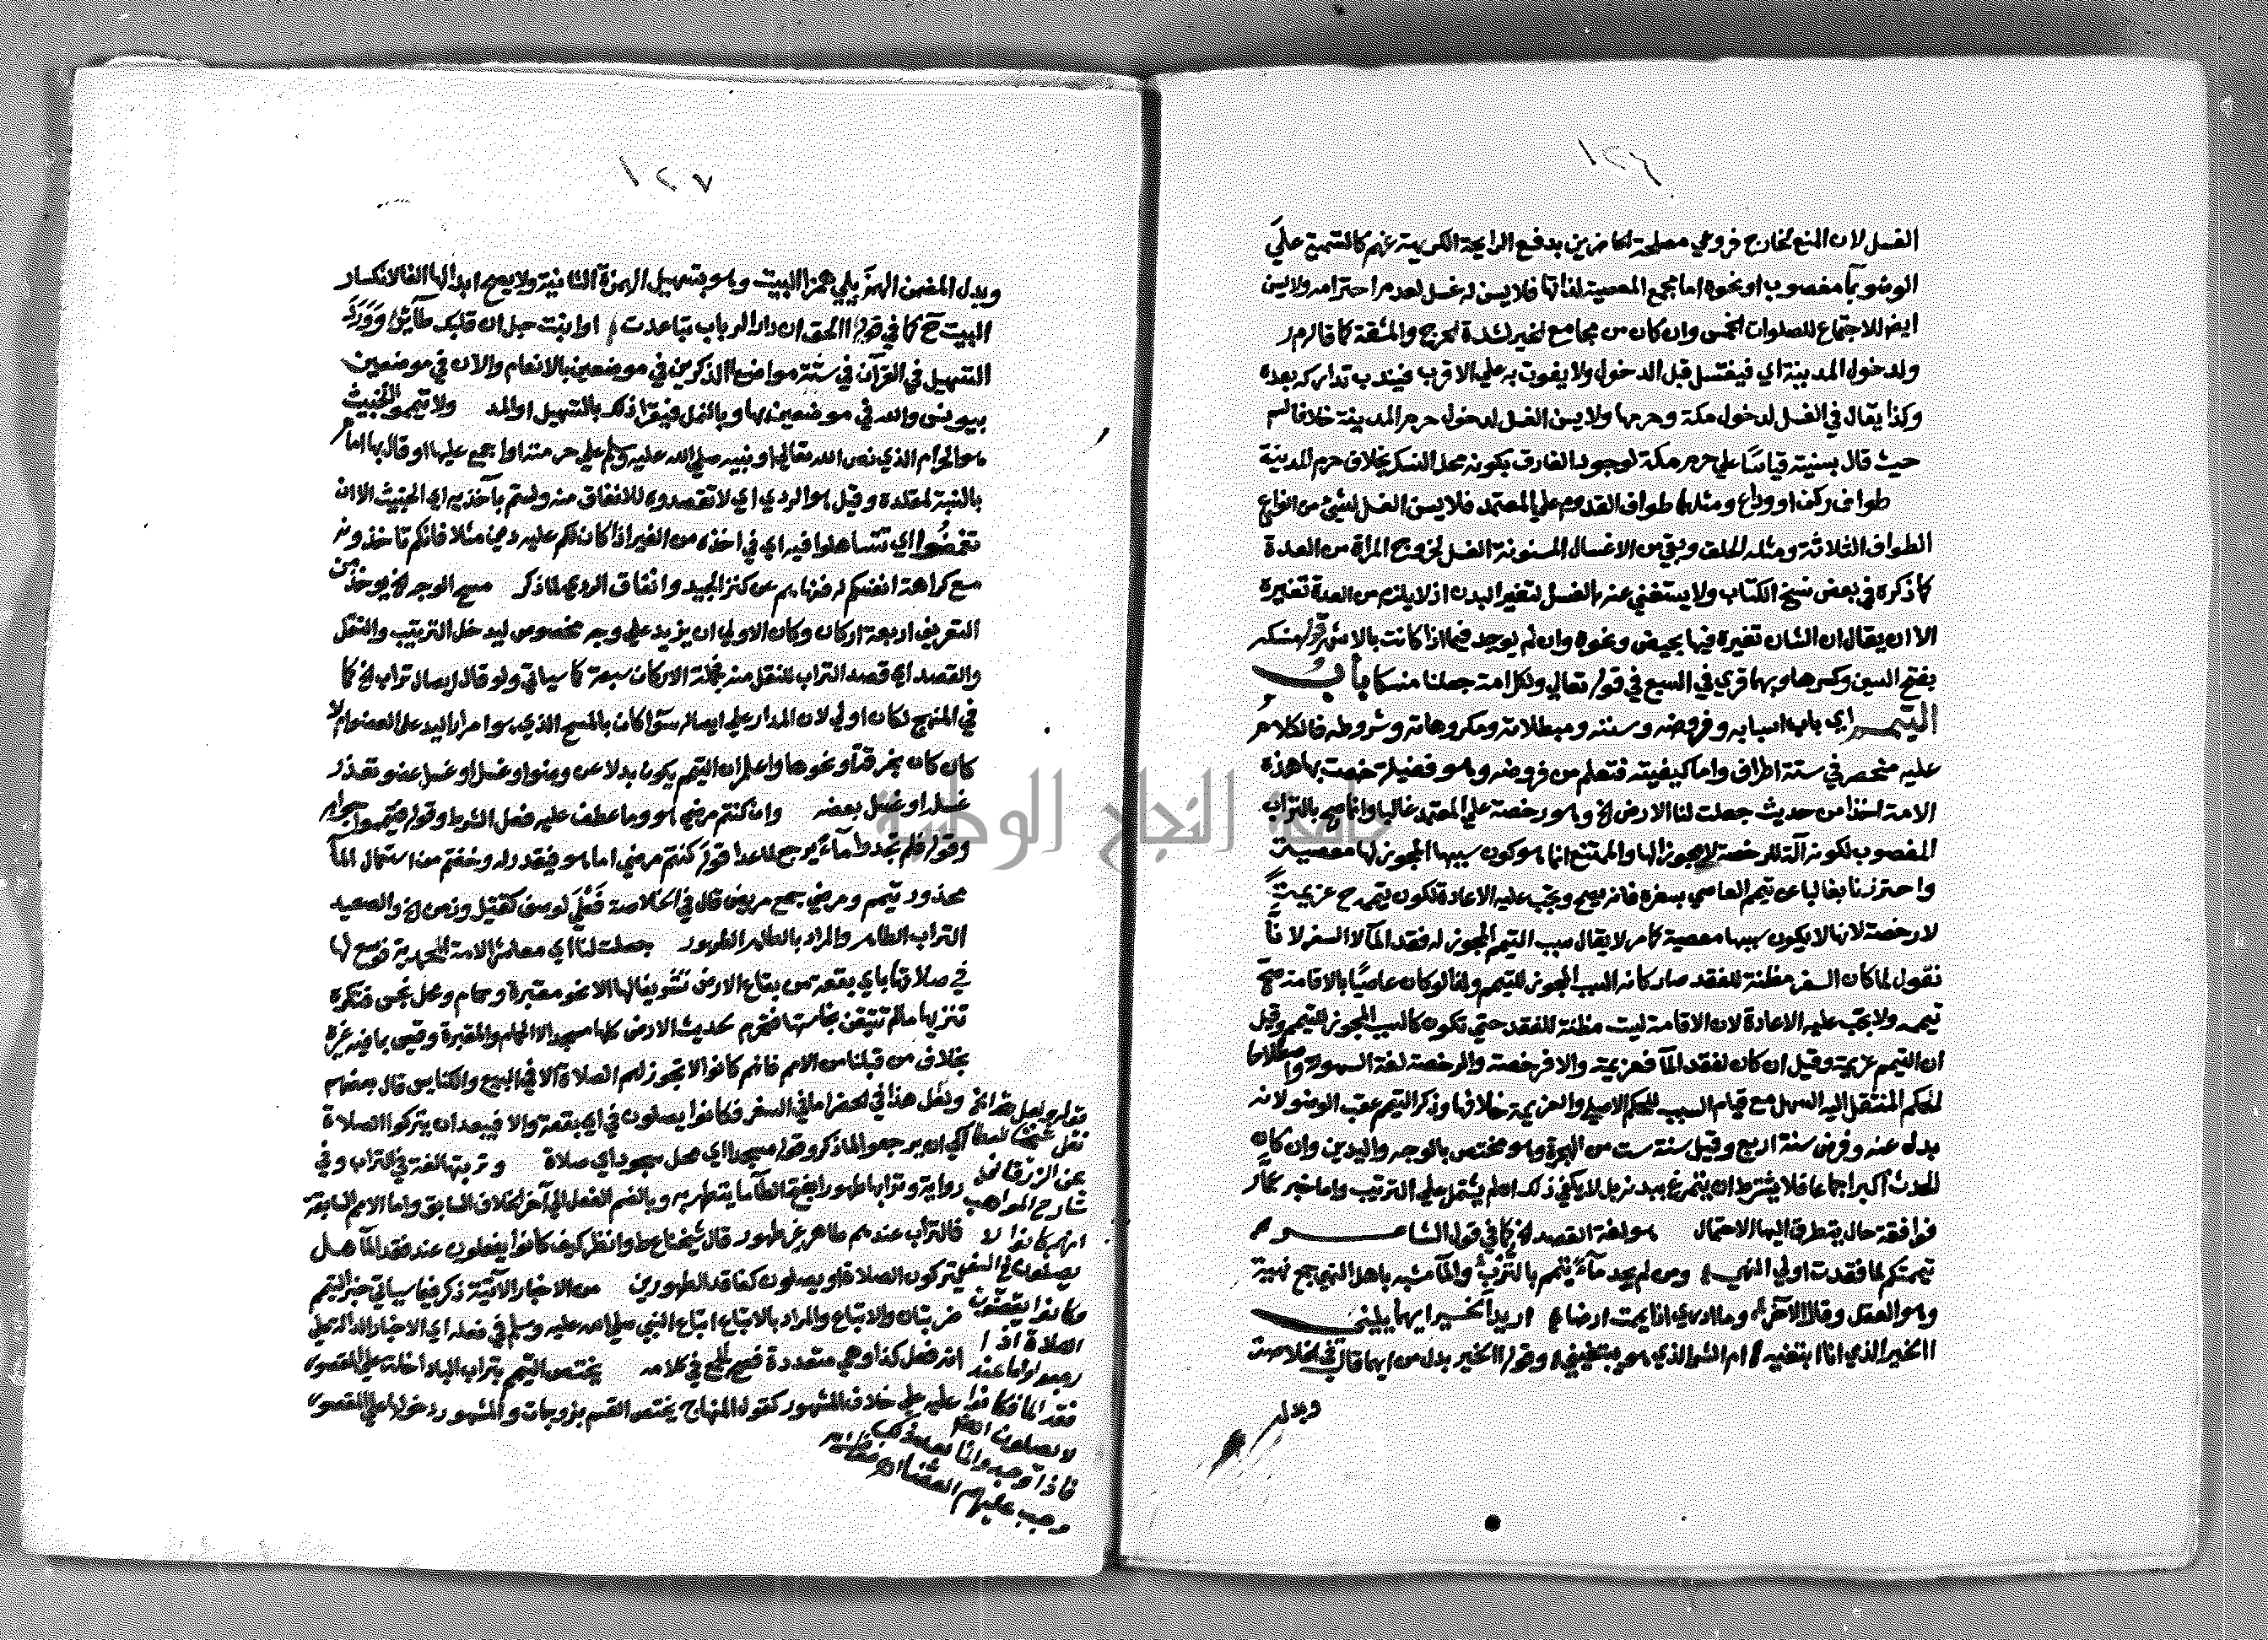 ١٢٦
الغسل لان المنع لخارج فروعي مصلحة الحاضرين بدفع الرايحة الكريهة عنهم كالتسمية على
الوضو بمآ مغصوب او نحوه اما مجمع المعصية لذاتها فلا يسن له غسل لعدم احترامه ولا يسن
ايضا للاجتماع للصلوات الخمس وان كان من مجامع الخير لشدة الحرج والمشقة كما قاله م ر
ولدخول المدينة اي فيغتسل قبل الدخول ولا يفوت به على الاقرب فيندب تداركه بعده
وكذا يقال في الغسل لدخول مكة وحرمها ولا يسن الغسل لدخول حرم المدينة خلافا لسم
حيث قال بسنيته قياسا علي حرم مكة لوجود الفارق بكونه محل النسك بخلاف حرم المدينة
طواف ركن او وداع ومثلها طواف القدوم علي المعتمد فلا يسن الغسل لشئ من انواع
الطواف الثلاثة ومثله الحلق وبقي من الاغسال المسنونة الغسل لخروج المراة من العدة
كما ذكره في بعض نسخ الكتاب ولا يستغني عنه بالغسل لتغير البدن اذ لا يلزم من العدة تغيره
الا ان يقال ان الشان تغيره فيها بحيض ونحوه وان لم يوجد فيما اذا كانت بالاشهر قوله منسك
بفتح السين وكسرها وبهما قري في السبع في قوله تعالي ولكل امة جعلنا منسكا باب
التيمم اي باب اسبابه وفروضه وسننه ومبطلاته ومكروهاته وشروطه فالكلام
عليه منحصر في ستة اطراف واما كيفيته فتعلم من فروضه وهو فضيلة خصت بها هذه
الامة اخذا من حديث جعلت لنا الارض الخ وهو رخصة علي المعتمد غالبا وانما صح بالتراب
المغصوب لكونه آلة للرخصة لا يجوز لها والممتنع انما هو كون سببها المجوز لها معصية
واحترزنا بغالبا عن تيمم العاصي بسفره فانه يصح ويجب عليه الاعادة لكون تيممه ح عزيمة
لا رخصة لانها لا يكون سببها معصية كما مر لا يقال سبب التيمم المجوز له فقد المآ لا السفر لانآ
نقول لما كان السفر مظنة للفقد صار كانه السبب المجوز للتيمم ولهذا لو كان عاصيا بالاقامة صح
تيممه ولا يجب عليه الاعادة لان الاقامة ليست مظنة للفقد حتي تكون كالسبب المجوز للتيمم وقيل
ان التيمم عزيمة وقيل ان كان لفقد المآ فعزيمة والا فرخصة والرخصة لغة السهولة واصطلاحا
الحكم المنتقل اليه السهل مع قيام السبب للحكم الاصلي والعزيمة خلافها وذكر التيمم عقب الوضو لانه
بدل عنه وفرض سنة اربع وقيل سنة ست من الهجرة وهو مختص بالوجه واليدين وان كان
الحدث اكبر اجماعا فلا يشترط ان يتمرغ ببدنه بل لا يكفي ذلك ان لم يشتمل علي الترتيب واما خبر عمار
فواقعة حال يتطرق اليها الاحتمال هو لغة القصد الخ كما في قول الشاعر
تيممتكم لما فقدت اولي النهى ومن لم يجد مآء تيمم بالترب والمآ مشبه باهل النهي جمع نهية
وهو العقل وقال الاخر وما ادري اذا يممت ارضا اريد الخير ايهما يليني
االخير الذي انا ابتغيه ام الشر الذي هو يبتغيني وقوله االخير بدل من ايهما قال في الخلاصة
وبدل
١٢٧
وبدل المضمن الهمز يلي همزا البيت وهو بتسهيل الهمزة الثانية ولا يصح ابدالها الفا لانكسار
البيت ح كما في قوله االحق ان دار الرباب تباعدت او انبت حبل ان قلبك طآئر وورد
التسهيل في القرآن في ستة مواضع االذكرين في موضعين بالانعام والان في موضعين
بيونس والله في موضعين بها وبالنمل فيقرا ذلك بالتسهيل او المد ولا تيمموا الخبيث
هو الحرام الذي نص الله تعالي او نبيه صلي الله عليه وسلم علي حرمته او اجمع عليها او قال بها امام
بالنسبة لمقلده وقيل هو الردي اي لا تقصدوه للانفاق منه ولستم بآخذيه اي الخبيث الا ان
تغمضوا اي تتساهلوا فيه اي في اخذه من الغير اذا كان لكم عليه دينا مثلا فانكم تاخذونه
مع كراهة انفسكم له فنهاهم عن كنز الجيد وانفاق الردي لما ذكر مسح الوجه الخ يوخذ من
التعريف اربعة اركان وكان الاولي ان يزيد علي وجه مخصوص ليدخل الترتيب والنقل
والقصد اي قصد التراب للنقل منه فجملة الاركان سبعة كما سياتي ولو قال ايصال تراب الخ كما
في المنهج لكان اولي لان المدار علي ايصاله سوا كان بالمسح الذي هو امرار اليد على العضو ام لا
كان كان بخرقة او نحوها واعلم ان التيمم يكون بدلا عن وضوا وغسل او غسل عضو تعذر
غسله او غسل بعضه وان كنتم مرضي هو وما عطف عليه فعل الشرط وقوله فتيمموا جوابه
وقوله فلم تجدوا مآء يرجع لما عدا قوله كنتم مرضي اما هو فيقدر له وخفتم من استعمال المآ
محذور تيمم ومرضي جمع مريض قال في الخلاصة فعلى لوصف كقتيل وزمن الخ والصعيد
التراب الطاهر والمراد بالطاهر الطهور جعلت لنا اي معاشر الامة المحمدية فوسع لها
في صلاتها باي بقعة من بقاع الارض تشريفا لها الا نحو مقبرة وحمام ومحل نجس فتكره
تنزيها ما لم تتيقن نجاستها فتحرم كحديث الارض كلها مسجد الا الحمام والمقبرة وقيس بما فيه غيره
بخلاف من قبلنا من الامم فانهم كانوا لا تجوز لهم الصلاة الا في البيع والكنايس قال بعضهم
ولعل هذا في الحضر اما في السفر فكانوا يصلون في اي بقعة والا فيبعد ان يتركوا الصلاة
الي ان يرجعوا لما ذكر وقوله مسجدا اي محل سجود اي صلاة وتربتها لغة في التراب وفي
رواية وترابها طهورا بفتح الطآ ما يتطهر به وبالضم الفعل الي آخر الخلاف السابق واما الامم السابقة
فالتراب عندهم طاهر غير طهور قال شيخنا ع ط وانظر كيف كانوا يفعلون عند فقد المآ هل
يتركون الصلاة او يصلون كفاقد الطهورين من الاخبار الآتية ذكر فيما سياتي خبر التيمم
ضربتان والاتباع والمراد بالاتباع اتباع النبي صلي الله عليه وسلم في فعله اي الاخبار الدالة علي
انه فعل كذا وهي متعددة فصح الجمع في كلامه يختص التيمم بتراب البا داخلة علي المقصور
عليه علي خلاف المشهور كقول المنهاج يختص القسم بزوجات والمشهور دخولها علي المقصور
قوله ولعل هذا الخ
نقل شيخنا
عن الزرقاني
شارح المواهب
انهم كانوا لا
يصلون في السفر
وكانوا يقضون
الصلاة اذا
رجعوا واما عند
فقد الما فكانوا
لا يصلون
فاذا وجدوا الما بعد ذلك
وجب عليهم القضا اهـ